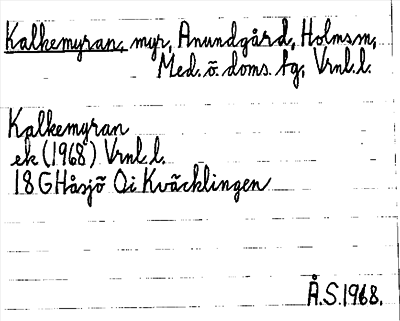 Kalkemyran, myr, Anundgård, Holmsm,
Med. ö. doms. tg, Vrnl. l.
Kalkemyran
ek (1968) Vrnl. l.
18G Håsjö Oi Kväcklingen
Å.S. 1968.